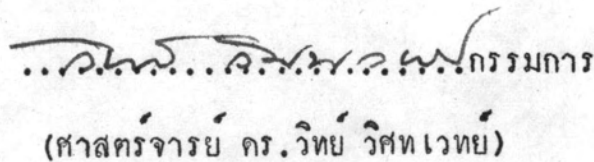 กรรมการ
(ศาสตร์จารย์ ดร.วิทย์ วิศทเวทย์)